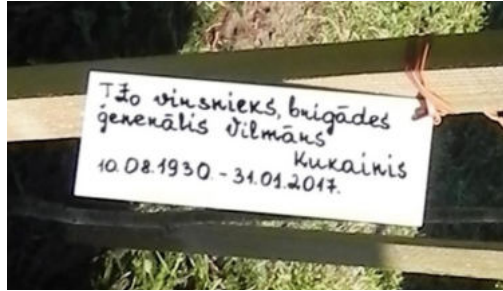 TŽo virsnieks, brigādes
ģenerālis Vilmārs
Kukainis
10.08.1930. - 31.01.2017.